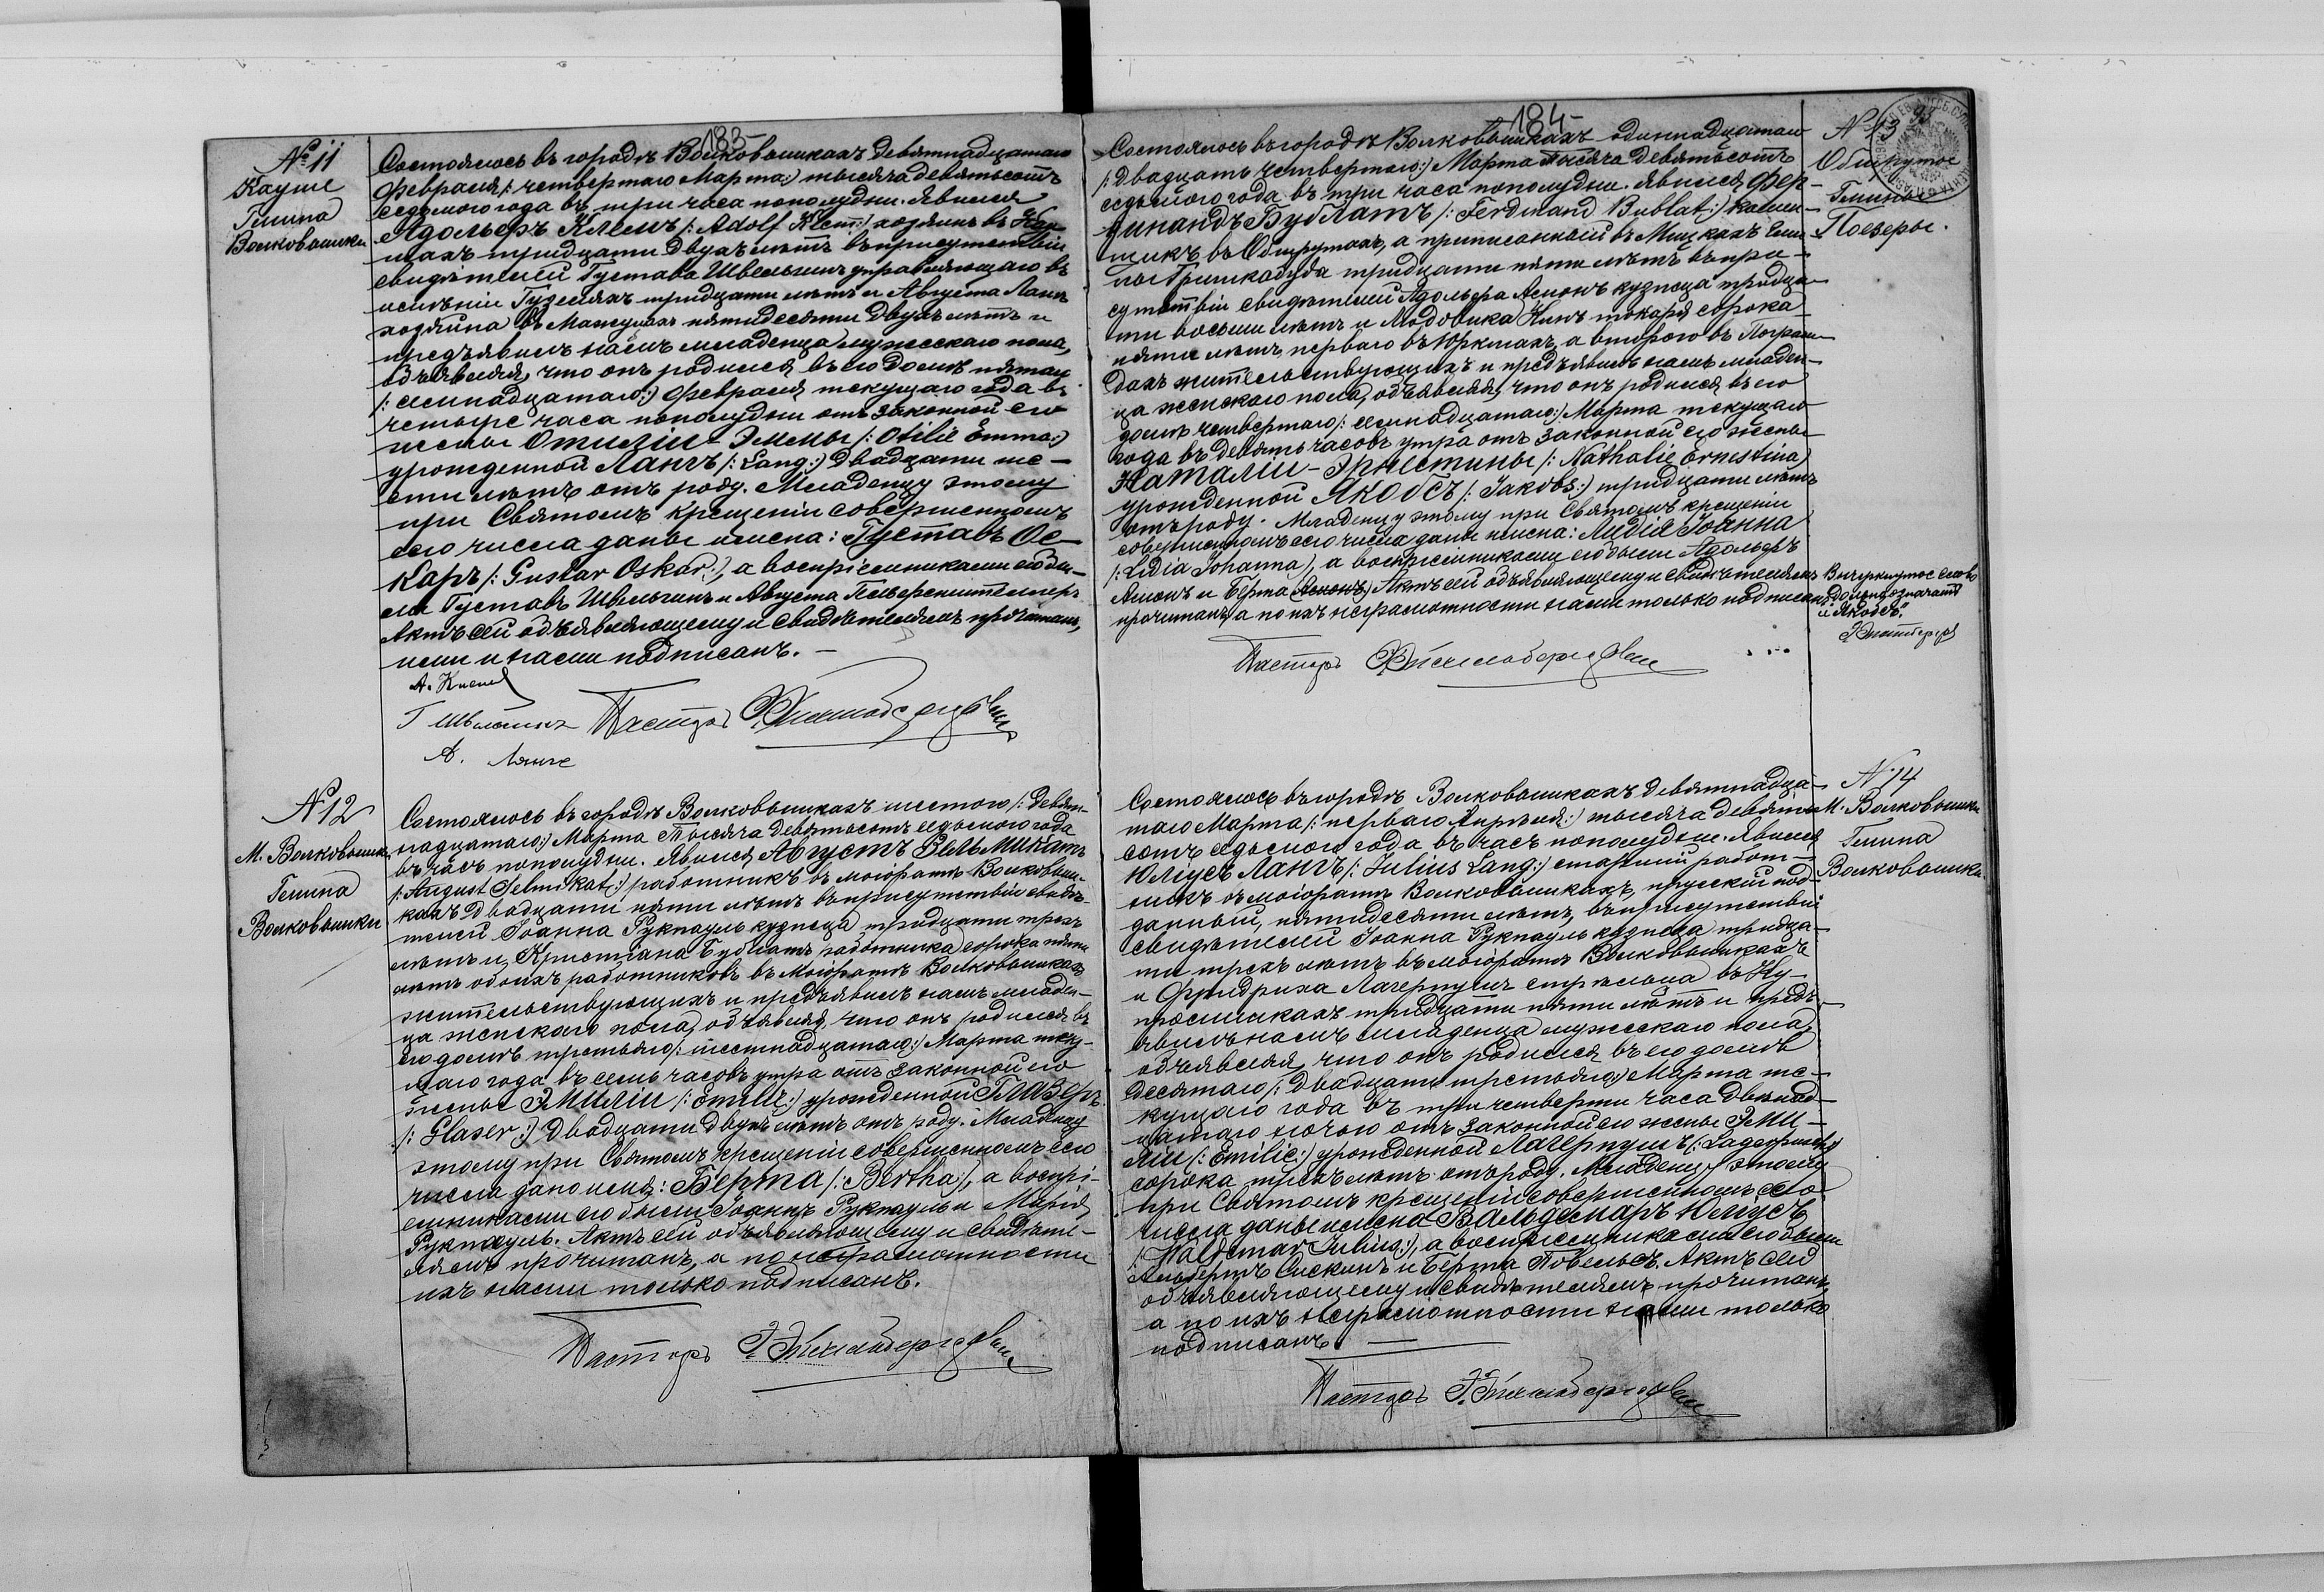 183
№ 11
Кауше
Гмина
Волковышки
Состоялось въ городѣ Волковышкахъ девятнадцатаго
Февраля /: четвертаго Марта :/ тысяча девятьсотъ
седьмого года въ три часа пополудни. Явился
Адольфъ Клемъ /: Adolf Klem :/ хозяинъ въ Кау-
шахъ тридцати двухъ лѣтъ въ присутствіи
свидѣтелей Густава Швельгинъ управляющаго въ
имѣніи тридцати лѣтъ и Августа Лангъ
хозяина въ пятидесяти двухъ лѣтъ и
предъявилъ намъ младенца мужескаго пола,
объявляя, что онъ родился въ его домѣ пятаго
/: семнадцатаго :/ Февраля текущаго года въ
четыре часа пополудни отъ законной его
жены Отиліи-Эммы /: Otilie Emma :/
урожденной Лангъ /: Lang :/ двадцати ше-
сти лѣтъ отъ роду. Младенцу этому
при Святомъ крещеніи совершенномъ
сего числа даны имена: Густавъ Ос-
каръ /: Gustav Oskar :/, а воспріемниками его бы-
ли Густавъ Швельгинъ и Августа
Актъ сей объявляющему и свидѣтелямъ прочитанъ,
ими и нами подписанъ. —
А. Клемъ
Г Швельгинъ Пасторъ
А. Ланге
№ 12
М. Волковышки
Гмина
Волковышки
Состоялось въ городѣ Волковышкахъ шестого /: девят-
надцатаго :/ Марта тысяча девятьсотъ седьмого года
въ часъ пополудни. Явился Августъ Зельмикатъ
/: August Selmikat :/ работникъ въ маіоратѣ Волковыш-
кахъ двадцати пяти лѣтъ въ присутствіи свидѣ-
телей Іоанна Рукпауль кузнеца тридцати трехъ
лѣтъ и Христіана Бублатъ работника сорока пяти
лѣтъ обоихъ работниковъ въ маіоратѣ Волковышкахъ
жительствующихъ и предъявилъ намъ младен-
ца женскаго пола, объявляя, что онъ родился въ
его домѣ третьяго /: шестнадцатаго :/ Марта теку-
щаго года въ семь часовъ утра отъ законной его
жены Эмиліи /: Emilie :/ урожденной Глазеръ
/: Glaser :/ двадцати двухъ лѣтъ отъ роду. Младенцу
этому при Святомъ крещеніи совершенномъ сего
числа дано имя: Берта /: Bertha :/, а воспрі-
емниками его были Іоаннъ Рукпауль и Марія
Рукпауль. Актъ сей объявляющему и свидѣте-
лямъ прочитанъ, а по неграмотности
ихъ нами только подписанъ.
Пасторъ
184
93
№ 13
Обшрутое
Гмина
Поезеры.
Состоялось въ городѣ Волковышкахъ одиннадцатаго
/: двадцать четвертаго :/ Марта тысяча девятьсотъ
седьмого года въ три часа пополудни. Явился Фер-
динандъ Бублатъ /: Ferdinand Bublat :/ камен-
щикъ въ Обшрутахъ, а приписанный въ Мицкахъ гми-
ны Гришкабуда тридцати пяти лѣтъ въ при-
сутствіи свидѣтелей Адольфа Асмонъ кузнеца тридца-
ти восьми лѣтъ и Людовика Кинъ токаря сорока
пяти лѣтъ перваго въ Юркшахъ, а второго въ
дахъ жительствующихъ и предъявилъ намъ младен-
ца женскаго пола, объявляя, что онъ родился въ его
домѣ четвертаго /: семнадцатаго :/ Марта текущаго
года въ девять часовъ утра отъ законной его жены
Наталіи-Эрнестины /: Nathalie Ernestina /
урожденной Якобсъ /: Jakobs :/ тридцати лѣтъ
отъ роду. Младенцу этому при Святомъ крещеніи
совершенномъ сего числа даны имена: Лидія Іоанна
/: Lidia Johanna /, а воспріемниками его были Адольфъ
Асмонъ и Берта Асмонъ. Актъ сей объявляющему и свидѣтелямъ
прочитанъ, а по ихъ неграмотности нами только подписанъ.
Вычеркнутое слово
должно означать
„Якобсъ“.
Пасторъ
№ 14
М. Волковышки
Гмина
Волковышки
Состоялось въ городѣ Волковышкахъ девятнадца-
таго Марта /: перваго Апрѣля :/ тысяча девять-
сотъ седьмого года въ часъ пополудни. Явился
Юліусъ Лангъ /: Julius Lang :/ старшій работ-
никъ въ маіоратѣ Волковышкахъ, прусскій под-
данный, пятидесяти лѣтъ, въ присутствіи
свидѣтелей Іоанна Рукпауль кузнеца тридца-
ти трехъ лѣтъ въ маіоратѣ Волковышкахъ
и Фридриха Лагерпушъ стрѣльца въ Ку-
просишкахъ тридцати пяти лѣтъ и предъ-
явилъ намъ младенца мужескаго пола,
объявляя, что онъ родился въ его домѣ
десятаго /: двадцать третьяго :/ Марта те-
кущаго года въ три четверти часа двѣнад-
цатаго ночью отъ законной его жены Эми-
ліи /: Emilie :/ урожденной Лагерпушъ
сорока трехъ лѣтъ отъ роду. Младенцу этому
при Святомъ крещеніи совершенномъ сего
числа даны имена Вальдемаръ Юліусъ
/: Waldemar Julius :/, а воспріемниками его были
Альбертъ Сискинъ и Берта Повельсъ. Актъ сей
объявляющему и свидѣтелямъ прочитанъ,
а по ихъ неграмотности нами только
подписанъ. —
Пасторъ